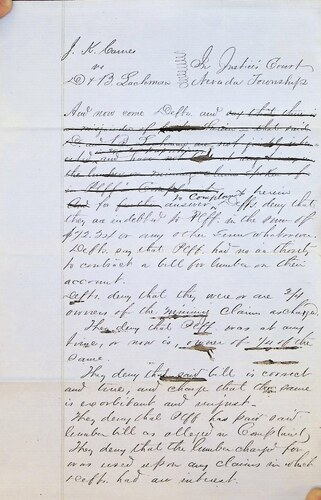 J. K. Carnes
vs
D & B. Lachman
In Justices Court
Nevada Township
And now come Defts. and say that there is
to Complaint herein
And for further answer Defts. deny that
they are indebted to Plff in the sum of
$72.24 or any other sum whatsoever.
Defts. say that Plff. had no authority
to contract a bill for lumber on their
account.
Defts. deny that they were or are 3/4
owners of the mining claim as charged
They deny that Plff was at any
time, or now is, owner of 1/4 of the
same.
They deny the said bill is correct
and true, and charge that the same
is exorbitant and unjust.
They deny that Plff has paid said
lumber bill as alleged in Complaint,
They deny that the lumber charged for
was used upon any claims in which
Defts. had an interest.